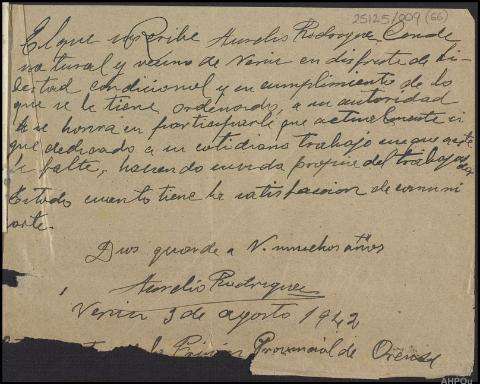 25125/009 (66)
El que suscribe Aurelio Rodriguez Conde
natural y vecino de Verin en disfrute de li-
bertad condicional y en cumplimiento de lo
que se le tiene ordenado, a su autoridad
se honra en participarle que actualmente si
gue dedicado a su cotidiano trabajo sin que este
le falte, haciendo vida propia del trabajador
Es todo cuanto tiene la satisfaccion de comuni
carle.
Dios guarde a V. muchos años
Aurelio Rodriguez
Verin 3 de agosto 1942
de la Prisión Provincial de Orense
AHPOu